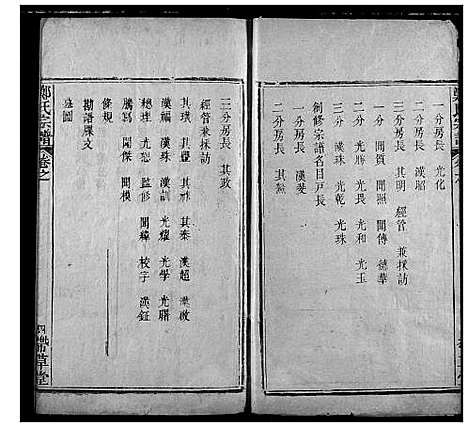 一分房長 光化
二分房長 漢昭
三分房長 其明 經管 兼採訪
一分 開質 開照 開傳 德華
二分 光勝 光長 光和 光玉
三分 漢珠 光乾 光珠
創修宗譜名目戶長
一分房長 漢愛
二分房長 其熏
三分房長 其政
經管兼採訪
其瑛 其祥 其泰 漢超
漢編 漢珠 漢訓 光耀 光學 光曙
總理 光懿 監修 開緯 校字 漢鈺
謄寫 開傑 開模
條規
勘語牒文
鄭氏宗譜 卷之
四 草堂